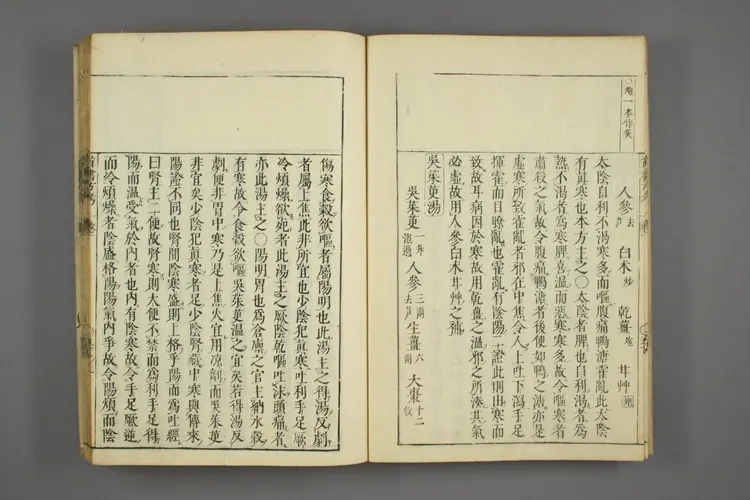 ○炮一本作炙
人參去芦 白朮炒 乾薑炮 甘艸
太陰自利不渴寒多而嘔腹痛鴨溏霍亂此太陰
有眞寒也本方主之○太陰者脾也自利渴者爲
熱不渴者爲寒脾喜溫而惡寒寒多故令嘔寒者
肅殺之氣故令腹痛鴨溏者後便如鴨之溏亦是
虛寒所致霍亂者邪在中焦令人上吐下瀉手足
揮霍而目瞭亂也霍亂有陰陽二證此則由寒而
致故耳病因於寒故用乾薑之溫邪之所湊其氣
必虛故用人參白朮甘艸之補
吳茱萸湯
吳茱萸一升泡過 人參三兩去芦 生薑六兩 大棗十二枚
傷寒食穀欲嘔者屬陽明也此湯主之得湯反劇
者屬上焦此非所宜也少陰犯眞寒吐利手足厥
冷煩燥欲死者此湯主之厥陰乾嘔吐沫頭痛者
亦此湯主之○陽明胃也爲倉廩之官主納水穀
有寒故令食穀欲嘔吳茱萸溫之宜矣若得湯反
劇便非胃中寒乃是上焦火宜用凉劑而吳茱萸
非宜矣少陰犯眞寒者足少陰腎藏中寒與傳來
陽證不同也腎間陰寒盛則上格乎陽而爲吐經
曰腎主二便故腎寒則大便不禁而爲利手足得
陽而溫受氣於內者也內有陰寒故令手足厥逆
而冷煩燥者陰盛格陽陽氣內爭故令陽煩而陰